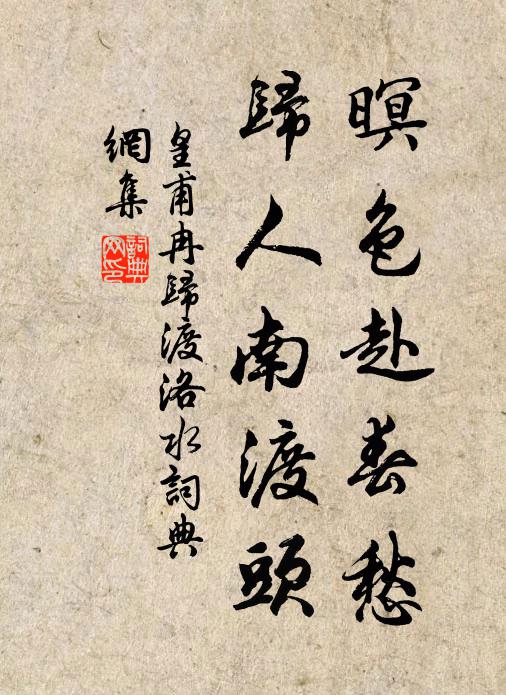 暝色赴春愁
歸人南渡頭
皇甫冉歸渡洛水詞典
網集
詞典網印